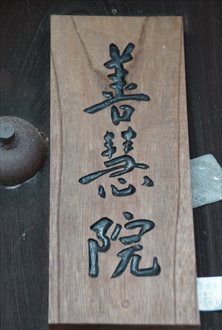 善慧院